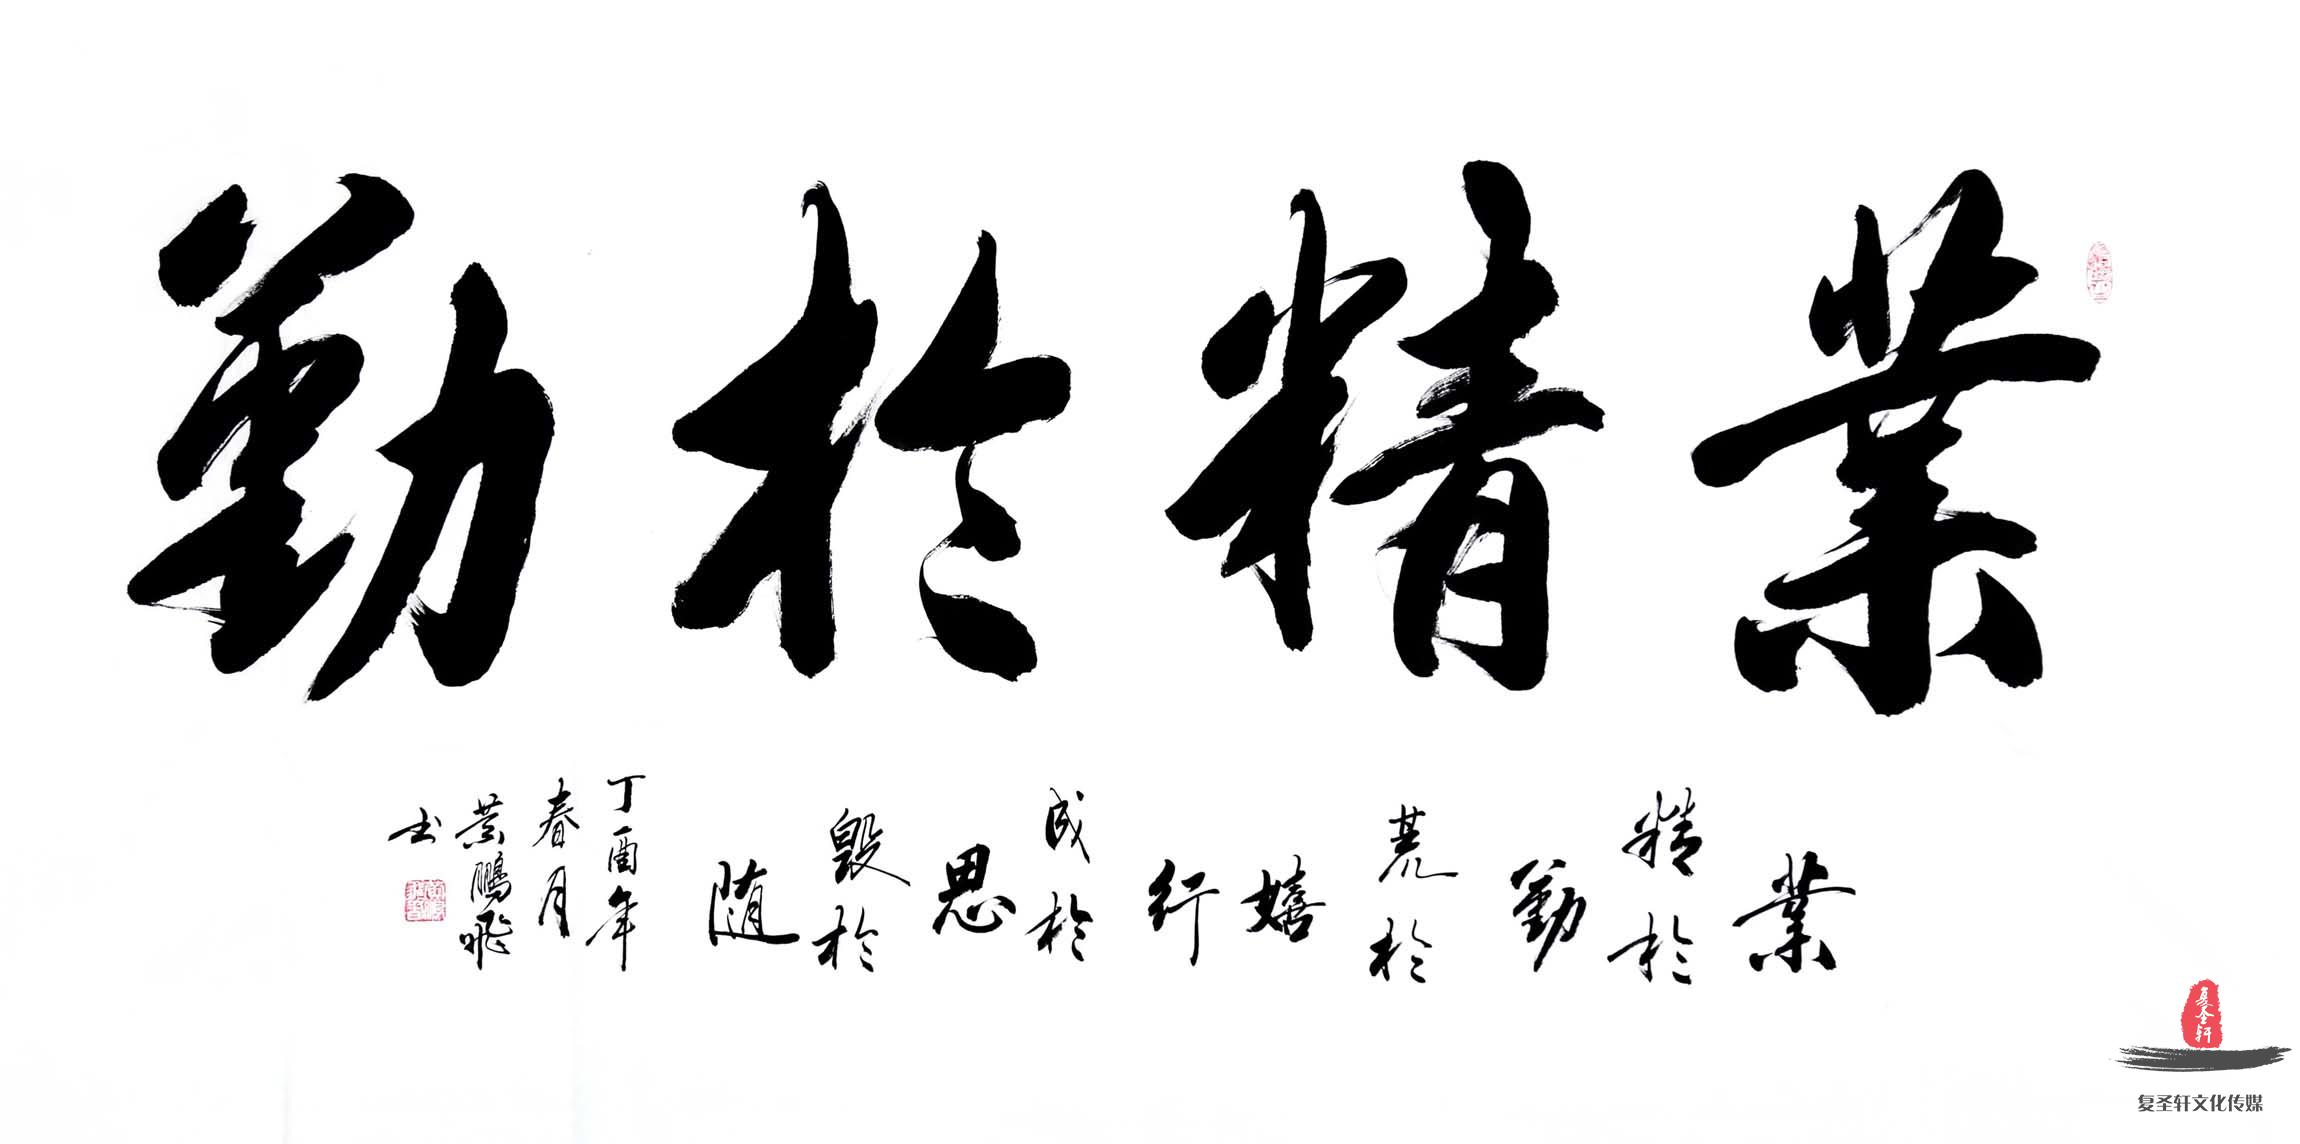 業精於勤
業精於勤荒於嬉行成於思毀於随
丁酉年
春月
黄鵬飛
书
复圣轩
复圣轩文化传媒